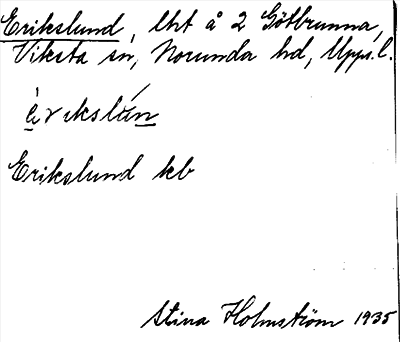 Erikslund, lht å 2 Götbrunna,
Viksta sn, Norunda hd, Upps. l.
èrikslún
Erikslund kb
Stina Holmström 1935